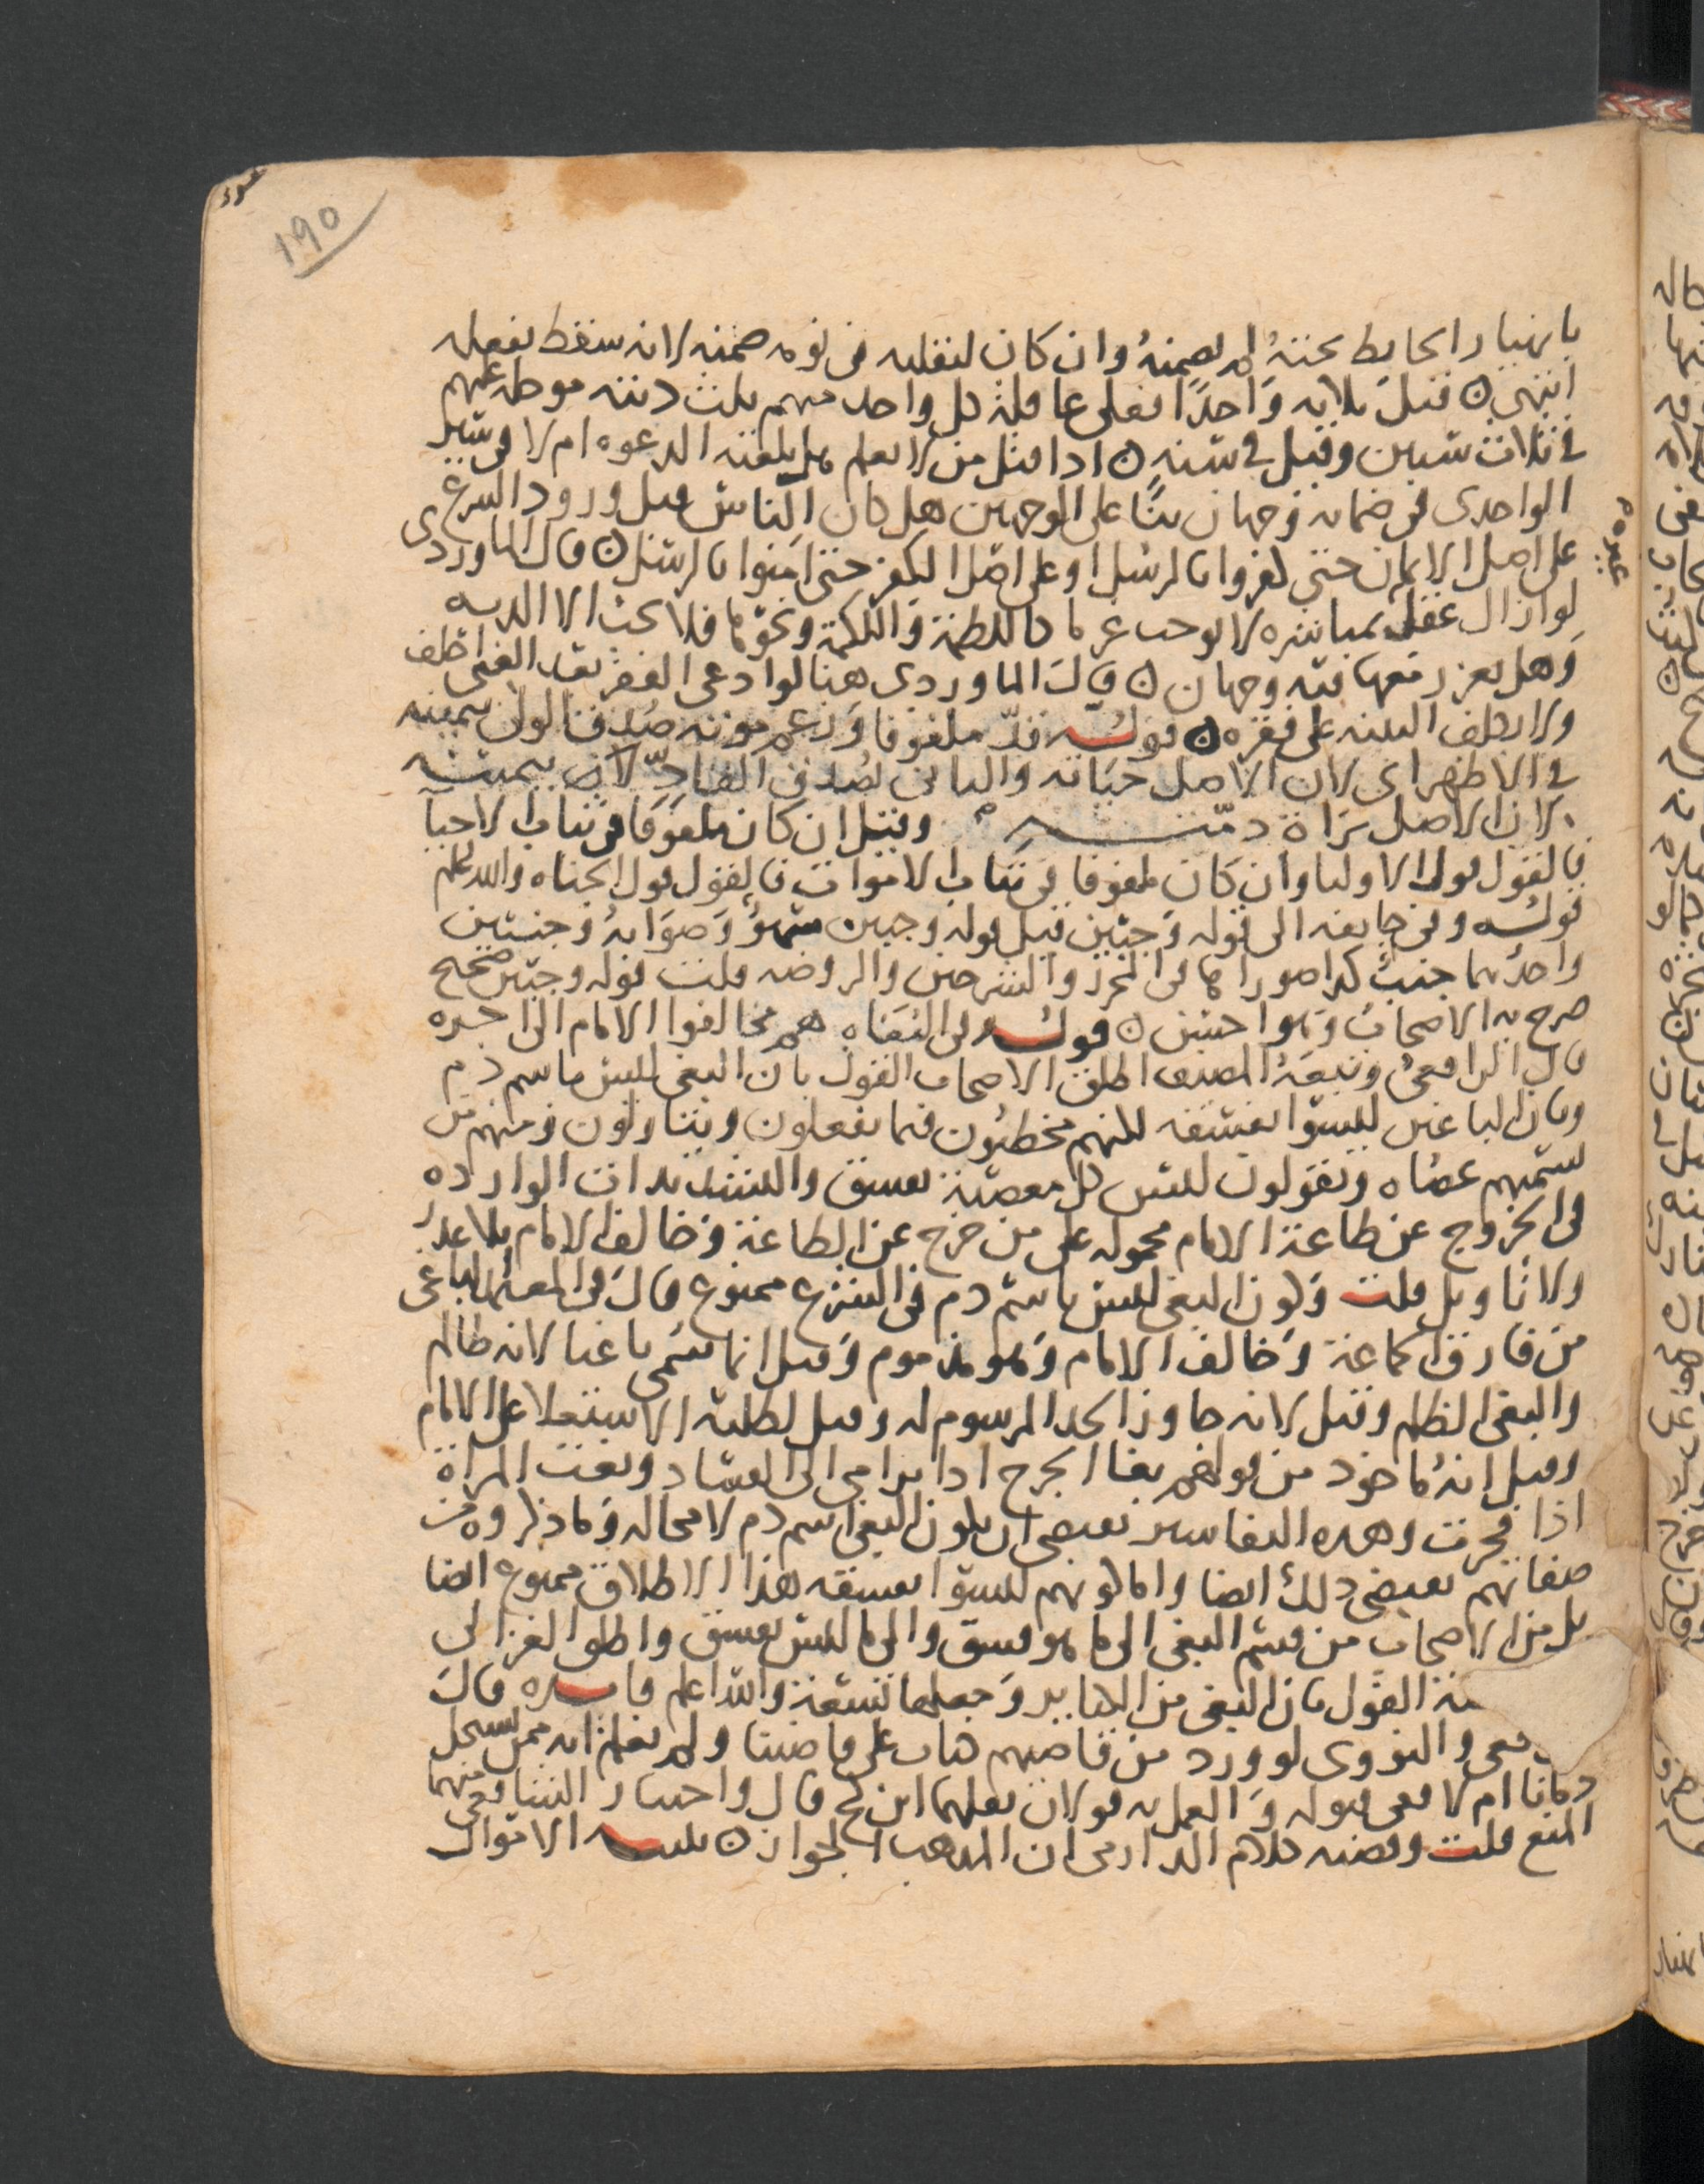 190
بانهيار الحايط تحته لم يضمنه وان كان لتقلبه في نومه ضمنه لانه سقط بفعله
انتهى ن قتل ثلاثه واحدا فعلى عاقلة كل واحد منهم ثلث ديته موجله عليهم
في ثلاث سنين وقيل في سنه ن اذا قتل من لا يعلم هل بلغته الدعوه ام لا
الواحدي في ضمانه وجهان بنا على الوجهين هل كان الناس قبل ورود الشرع
على اصل الايمان حتى كفروا بالرسل او على اصل الكفر حتى امنوا بالرسل ن قال الماوردي
لو ازال عقله بمباشره لا توجب غرما كاللطمة واللكمة ونحوهما فلا يجب الا الديه
وهل يعزر معها فيه وجهان ن قال الماوردي هنا لو ادعى الفقر بعد الغنى حلف
ولا يكلف البينه على فقره ن قوله قد ملفوفا وزعم موته صدق الولي بيمينه
في الاظهر اى لان الاصل حياته والثاني يصدق القاد لان بيمينه
لان الاصل براة ذمته وقيل ان كان ملفوفا في ثياب الاحيا
فالقول قول الاوليا وان كان ملفوفا في ثياب الاموات فالقول قول الجناه والله اعلم
قوله وفي جايفه الى قوله وجبين قيل قوله وجبين سهو وصوابه وجنبين
واحدهما جنب كذا صورها في المحرر والشرحين والروضه قلت قوله وجبين صحيح
صرح به الاصحاب وهو احسن ن قوله في البغاه هم مخالفوا الامام الى اخره
قال الرافعي وتبعه المصنف اطلق الاصحاب القول بان البغي ليس باسم ذم
وبان الباغين ليسوا بفسقه لكنهم مخطئون فيما يفعلون ويتاولون ومنهم من
يسميهم عصاه ويقولون ليس كل معصية بفسق والتشديدات الوارده
في الخروج عن طاعة الامام محموله على من خرج عن الطاعة وخالف الامام بلا عذر
ولا تاويل قلت وكون البغي ليس باسم ذم في الشرع ممنوع قال في الباغي
من فارق الجماعة وخالف الامام وهو مذموم وقيل انما سمي باغيا لانه ظالم
والبغي الظلم وقيل لانه جاوز الحد المرسوم له وقيل لطلبه الاستعلا على الامام
وقيل انه ماخوذ من قولهم بغا الجرح اذا ترامى الى الفساد وبغت المراة
اذا فجرت وهذه التفاسير تقتضي ان يكون البغي اسم ذم لا محاله وما ذكروه من
صفاتهم تقتضي ذلك ايضا واما كونهم ليسوا بفسقه هذا الاطلاق ممنوع ايضا
بل من الاصحاب من قسم البغي الى ما هو فسق والى ما ليس بفسق واطلق الغزالي
القول بان البغي من الكباير وجعلها تسعة والله اعلم فايده قال
والنووي لو ورد من قاضيهم كتاب على قاضينا ولم يعلم انه ممن يستحل
دمانا ام لا ففي قبوله والعمل به قولان نقلهما ابن كج قال واختيار الشافعي منهما
المنع قلت وقضيه كلام الدارمي ان المذهب الجواز ن الاموال